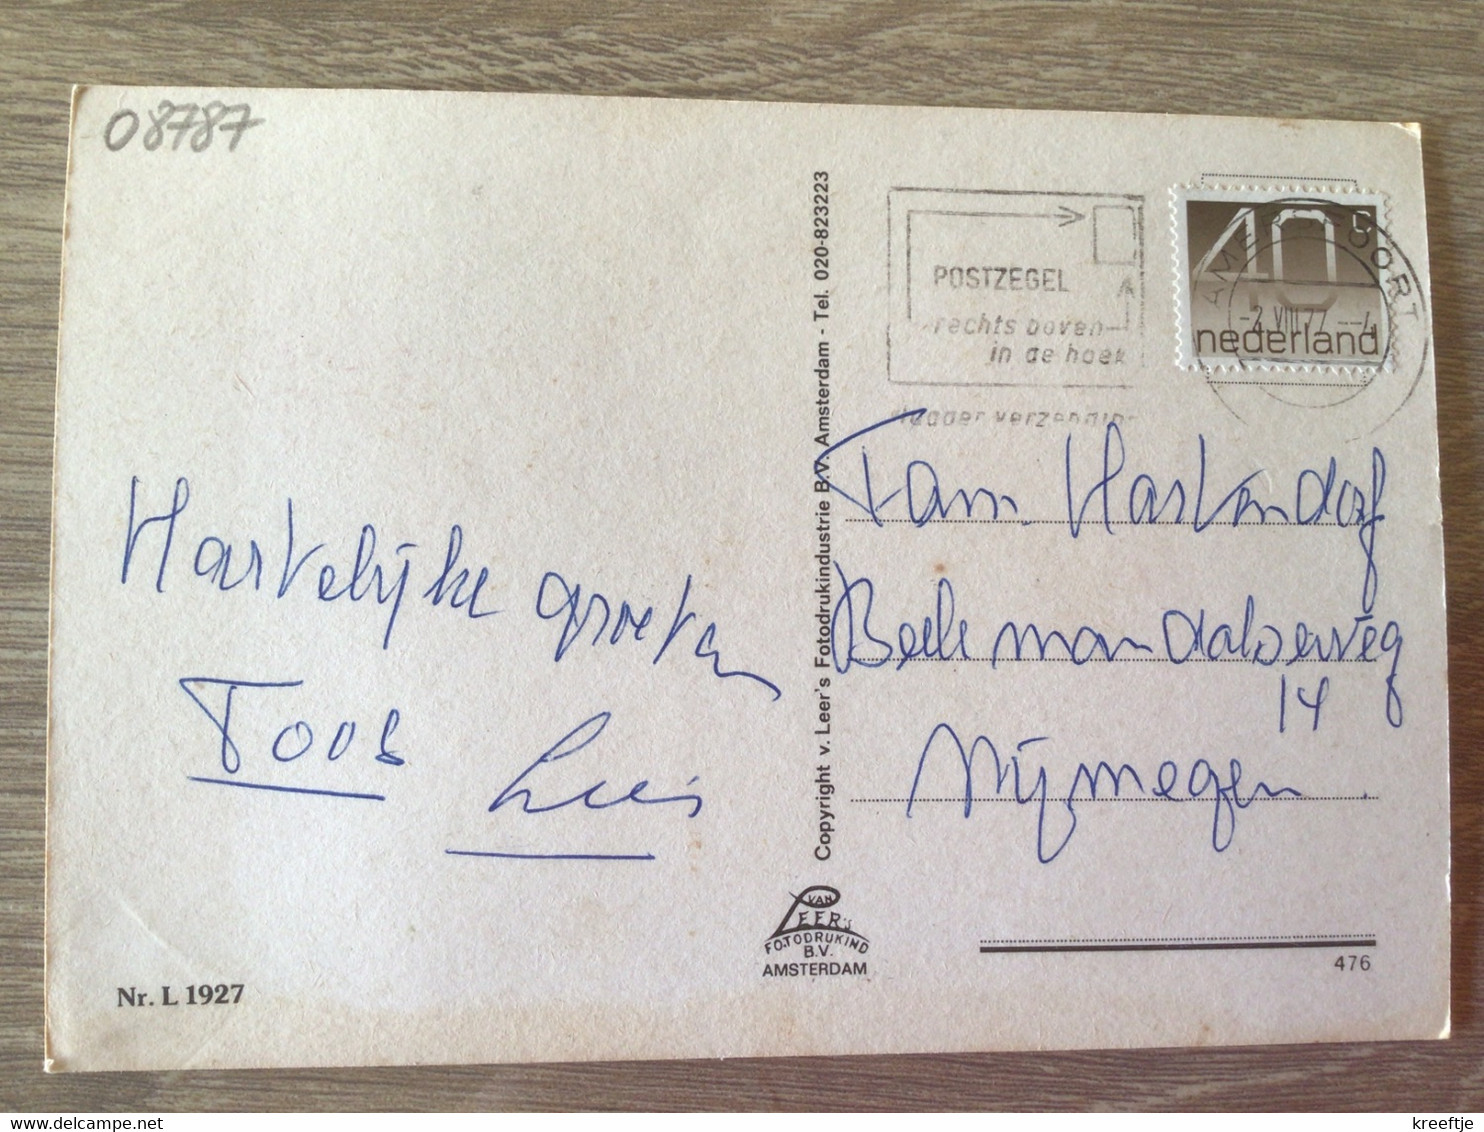 08787
POSTZEGEL
rechts boven
in de hoek
AMERSFOORT
-2.VIII.77
40 c
nederland
Hartelijke groeten
Toos Luis
Fam. Hartendorf
Beekmandalseweg
14
Nijmegen
Copyright v. Leer's Fotodrukindustrie B.V. Amsterdam - Tel. 020-823223
VAN
LEER'S
FOTODRUKIND
B.V.
AMSTERDAM
Nr. L 1927
476
kreeftje